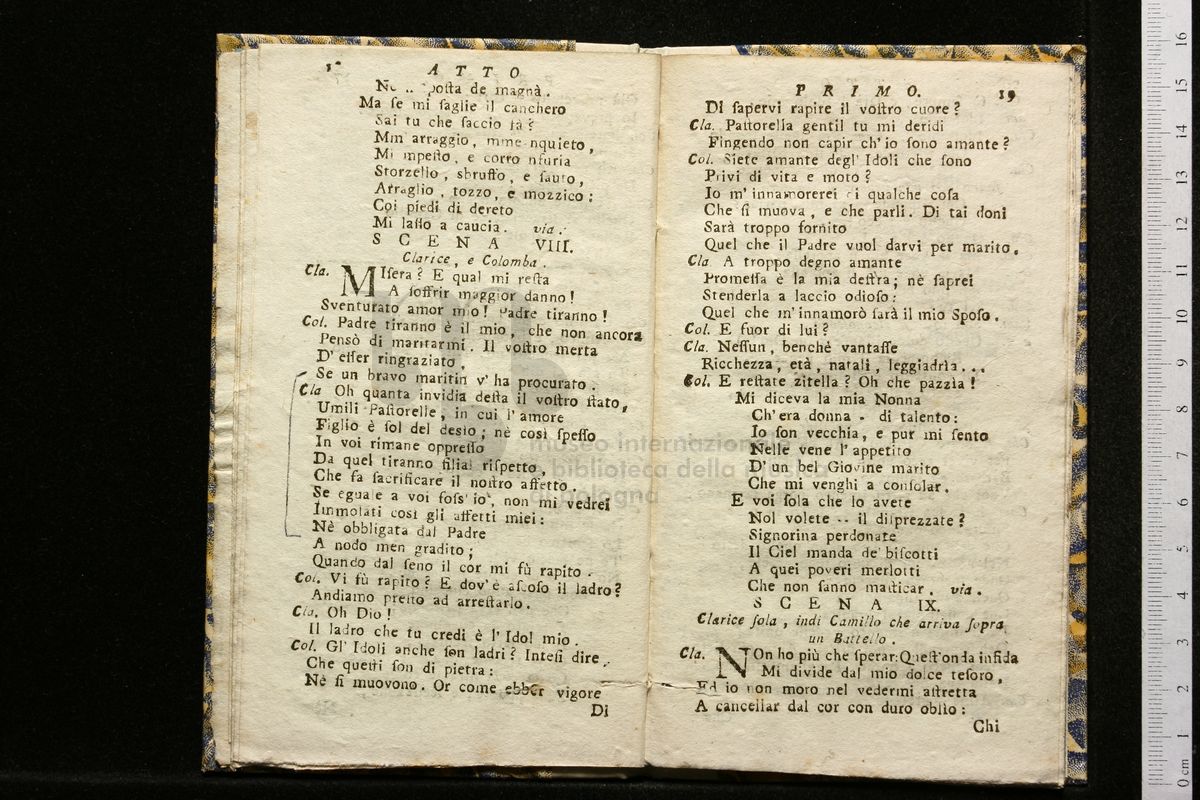 ATTO
posta de magnà.
Ma se mi saglie il canchero
Sai tu che faccio fà?
Mm' arraggio, mme nquieto,
Mi mpesto, e corro nfuria
Storzello, sbruffo, e sauto,
Arraglio, tozzo, e mozzico:
Coi piedi di dereto
Mi lasso a caucia. via.
SCENA VIII.
Clarice, e Colomba.
Cla. MIsera? E qual mi resta
A soffrir maggior danno!
Sventurato amor mio! Padre tiranno!
Col. Padre tiranno è il mio, che non ancora
Pensò di maritarmi. Il vostro merta
D' esser ringraziato,
Se un bravo maritin v' ha procurato.
Cla Oh quanta invidia desta il vostro stato,
Umili Pastorelle, in cui l' amore
Figlio è sol del desio; nè così spesso
In voi rimane oppresso
Da quel tiranno filial rispetto,
Che fa sacrificare il nostro affetto.
Se eguale a voi foss' io, non mi vedrei
Immolati così gli affetti miei:
Nè obbligata dal Padre
A nodo men gradito;
Quando dal seno il cor mi fù rapito.
Col. Vi fù rapito? E dov' è ascoso il ladro?
Andiamo presto ad arrestarlo.
Cla. Oh Dio!
Il ladro che tu credi è l' Idol mio.
Col. Gl' Idoli anche son ladri? Intesi dire
Che questi son di pietra:
Nè si muovono. Or come ebber vigore
Di
PRIMO. 19
Di sapervi rapire il vostro cuore?
Cla. Pastorella gentil tu mi deridi
Fingendo non capir ch' io sono amante?
Col. Siete amante degl' Idoli che sono
Privi di vita e moto?
Io m' innamorerei di qualche cosa
Che si muova, e che parli. Di tai doni
Sarà troppo fornito
Quel che il Padre vuol darvi per marito.
Cla A troppo degno amante
Promessa è la mia destra; nè saprei
Stenderla a laccio odioso:
Quel che m' innamorò sarà il mio Sposo.
Col. E fuor di lui?
Cla. Nessun, benchè vantasse
Ricchezza, età, natali, leggiadrìa...
Col. E restate zitella? Oh che pazzìa!
Mi diceva la mia Nonna
Ch' era donna - di talento:
Io son vecchia, e pur mi sento
Nelle vene l' appetito
D' un bel Giovine marito
Che mi venghi a consolar.
E voi sola che lo avete
Nol volete -- il disprezzate?
Signorina perdonate
Il Ciel manda de' biscotti
A quei poveri merlotti
Che non sanno masticar. via.
SCENA IX.
Clarice sola, indi Camillo che arriva sopra
un Battello.
Cla. NOn ho più che sperar: Quest' onda infida
Mi divide dal mio dolce tesoro,
Ed io non moro nel vedermi astretta
A cancellar dal cor con duro oblìo:
Chi
museo internazionale
e biblioteca della musica
di bologna
0 cm 1 2 3 4 5 6 7 8 9 10 11 12 13 14 15 16